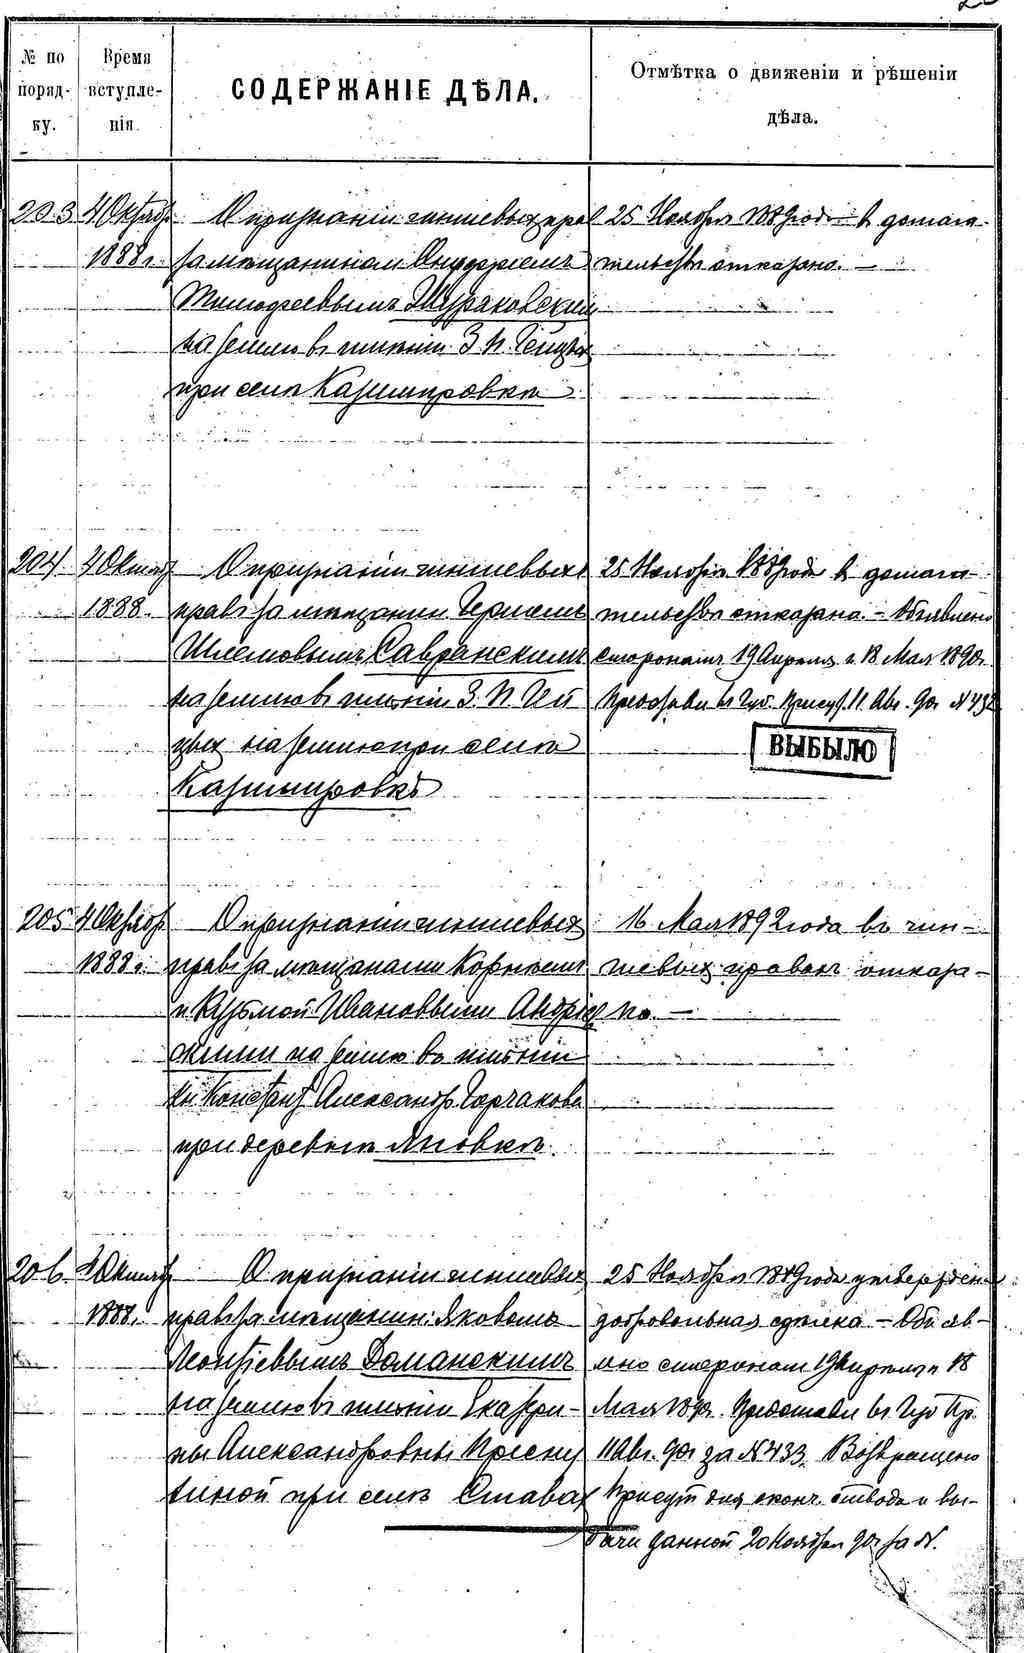 № по поряд- ку.
Время вступле- нія.
СОДЕРЖАНІЕ ДѢЛА.
Отмѣтка о движеніи и рѣшеніи дѣла.
203
4 Октябр.
1888 г.
О признаніи чиншевыхъ прав
за мѣщаниномъ
Тимофеевымъ
на землю въ имѣніи З. П.
при селѣ Казимировкѣ
25 Ноября 1889 года въ домага-
тельствѣ отказано. —
204
4 Октяб.
1888.
О признаніи чиншевыхъ
правъ за мѣщанин.
Шлемовымъ Савранскимъ
на землю въ имѣніи З. П.
на землю при селѣ
Казимировкѣ
25 Ноября 1889 года въ домага-
тельствѣ отказано. — Объявлено
сторонамъ 19 Апреля и 18 Мая 1890 г.
въ Губ. Присут. 11 Авг. 90 г. № 432
ВЫБЫЛО
205
4 Октябр.
1888 г.
О признаніи чиншевыхъ
правъ за мѣщанами
и Кузьмой Ивановыми
на землю въ имѣніи
Кн. Констант. Александр. Горчакова
при деревнѣ Яновкѣ.
16 Мая 1892 года въ чин-
шевыхъ правахъ отказа-
но. —
206
4 Октяб.
1888.
О признаніи чиншевыхъ
правъ за мѣщанин. Яковомъ
Леонтіевымъ Доманскимъ
на землю въ имѣніи Екатери-
ны Александровны
при селѣ Ставах
25 Ноября 1889 года утвержден
добровольная сделка — Объяв-
лено сторонам 19 Апреля и 18
Мая 1890 г. въ Губ. Пр.
11 Авг. 90 г. за № 433. Возвращено
Присут. для оконч. отвода и вы-
дачи данной 20 Ноября 90 г. за №.